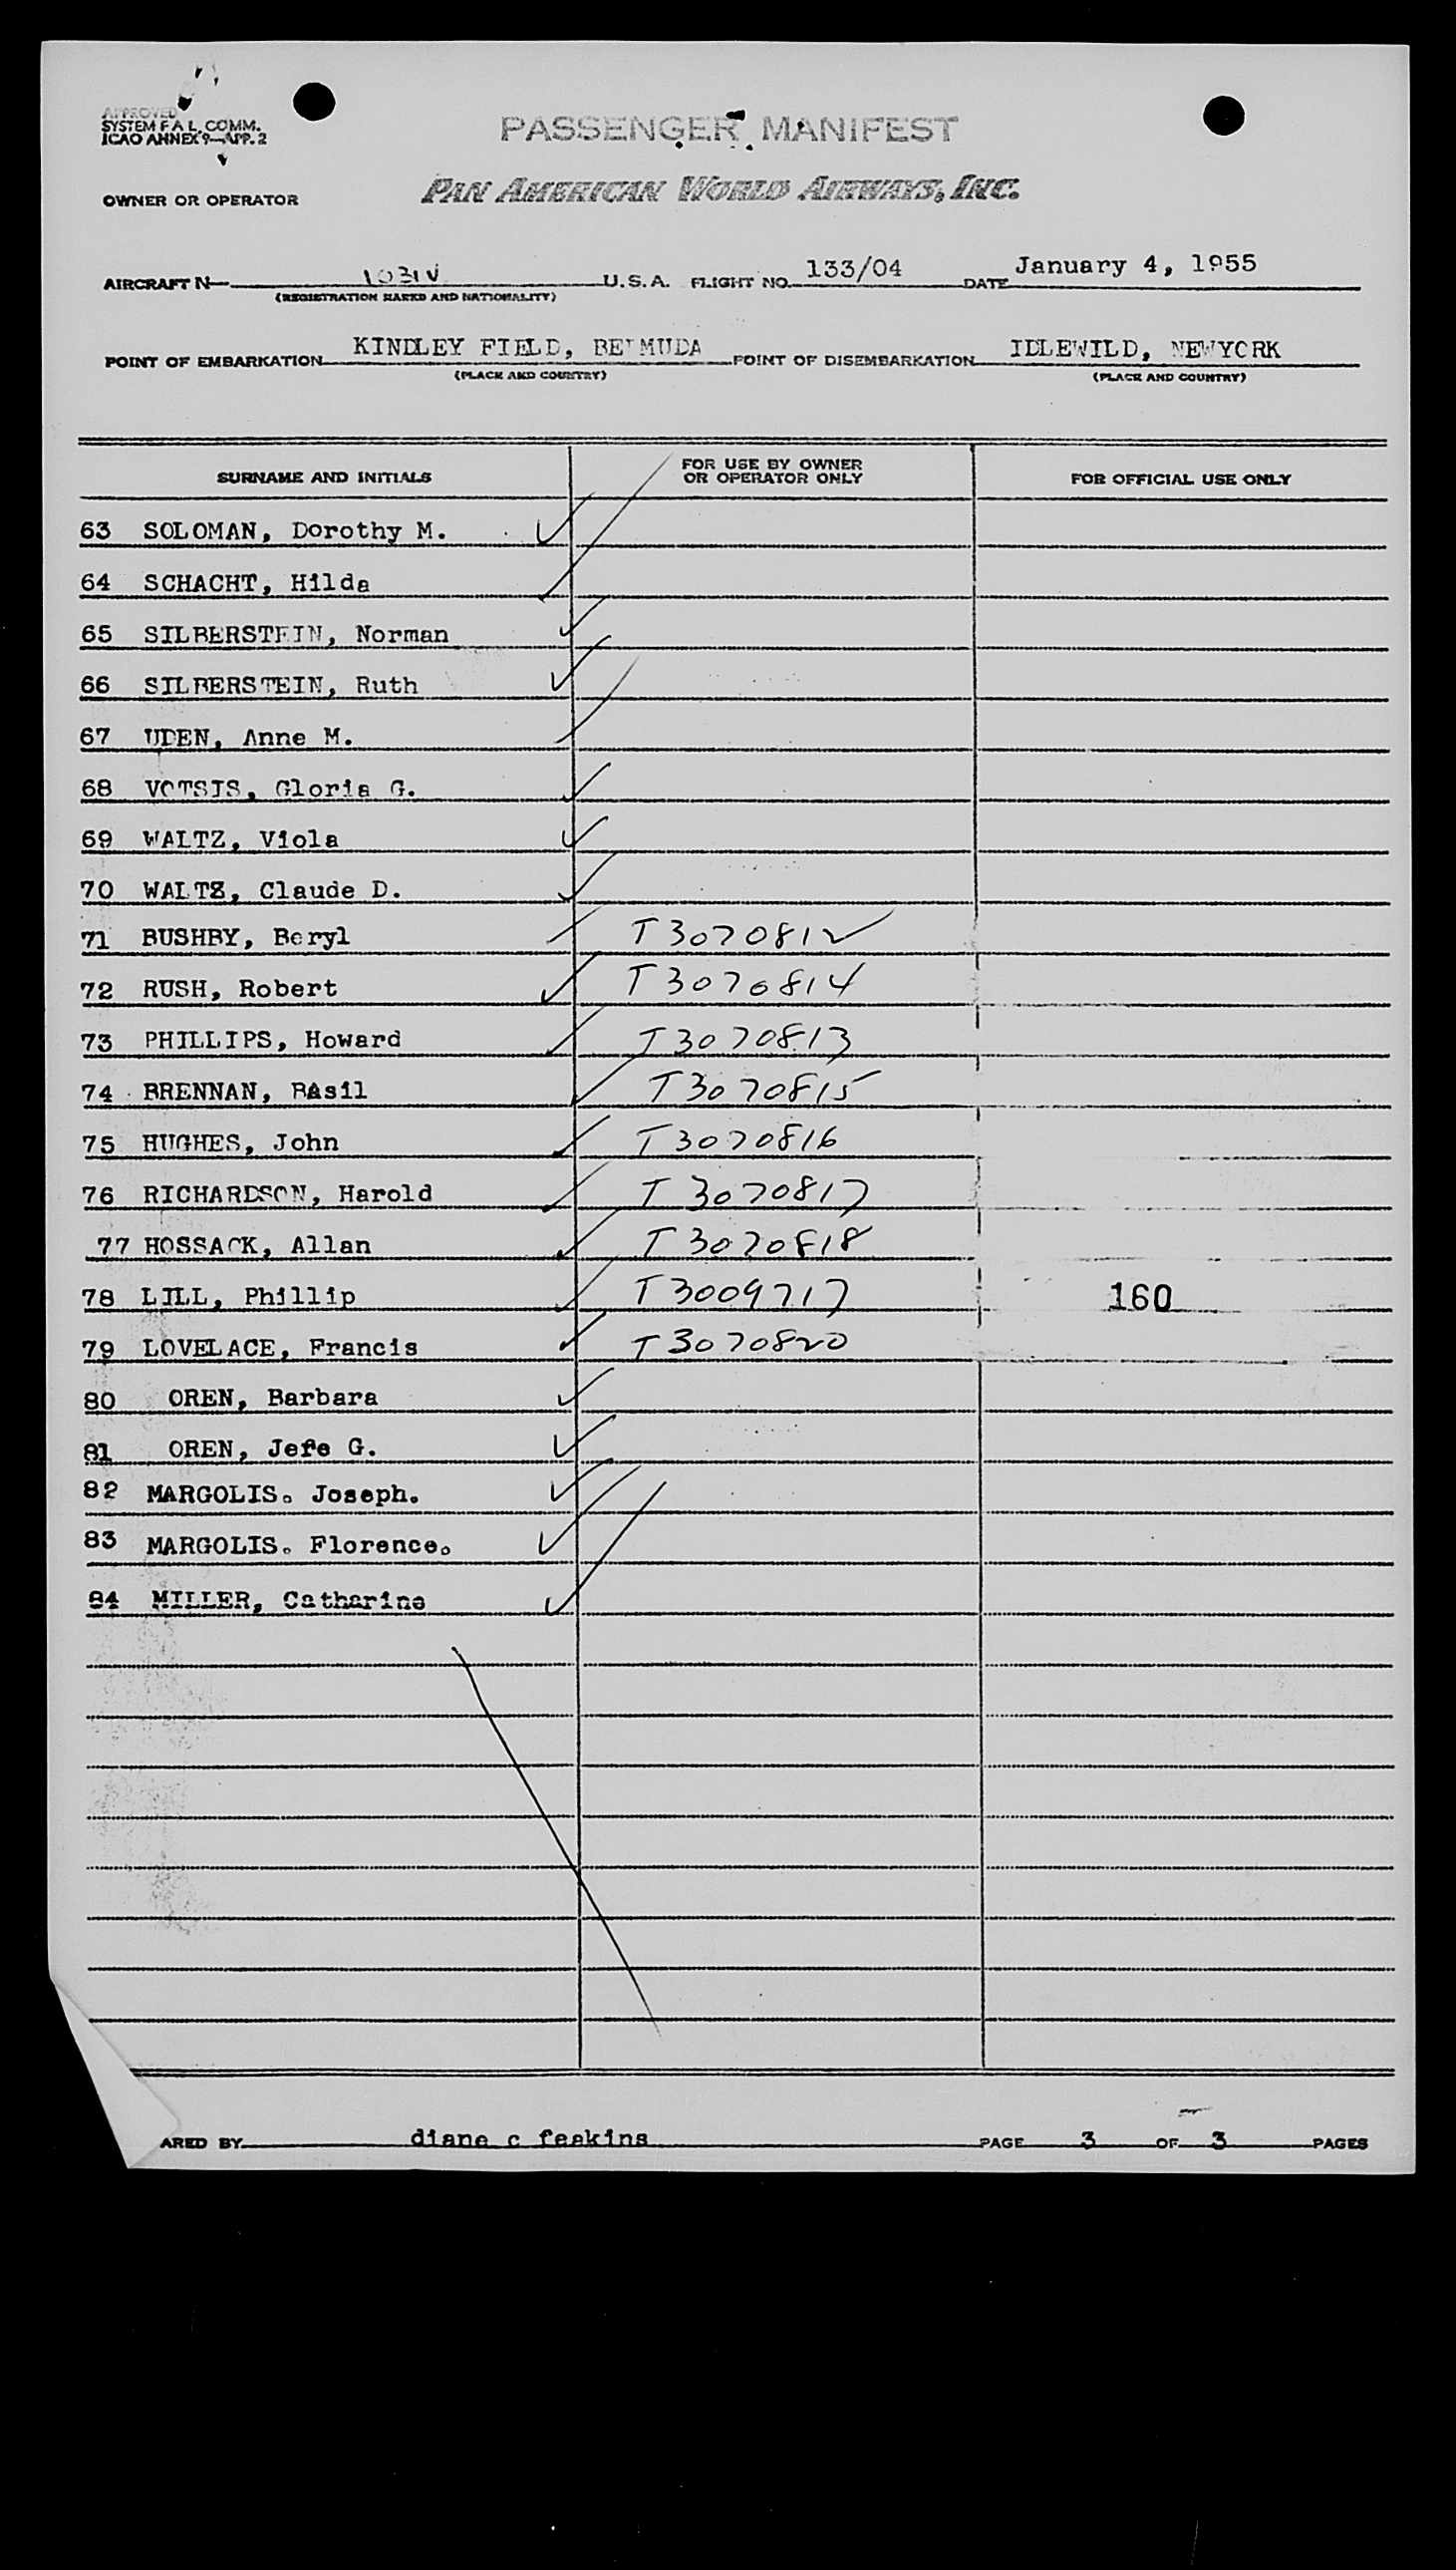 APPROVED
SYSTEM F A L COMM.
ICAO ANNEX 9—APP. 2
PASSENGER MANIFEST
OWNER OR OPERATOR
PAN AMERICAN WORLD AIRWAYS, INC.
AIRCRAFT N— 1031V U.S.A. FLIGHT NO. 133/04 DATE January 4, 1955
(REGISTRATION MARKS AND NATIONALITY)
POINT OF EMBARKATION KINDLEY FIELD, BERMUDA POINT OF DISEMBARKATION IDLEWILD, NEWYORK
(PLACE AND COUNTRY) (PLACE AND COUNTRY)
SURNAME AND INITIALS FOR USE BY OWNER OR OPERATOR ONLY FOR OFFICIAL USE ONLY
63 SOLOMAN, Dorothy M.
64 SCHACHT, Hilda
65 SILBERSTEIN, Norman
66 SILBERSTEIN, Ruth
67 UDEN, Anne M.
68 VOTSIS, Gloria G.
69 WALTZ, Viola
70 WALTZ, Claude D.
71 BUSHBY, Beryl T3070812
72 RUSH, Robert T3070814
73 PHILLIPS, Howard T3070813
74 BRENNAN, BAsil T3070815
75 HUGHES, John T3070816
76 RICHARDSON, Harold T3070817
77 HOSSACK, Allan T3070818
78 LILL, Phillip T3009717 160
79 LOVELACE, Francis T3070820
80 OREN, Barbara
81 OREN, Jefe G.
82 MARGOLIS. Joseph.
83 MARGOLIS. Florence.
84 MILLER, Catharine
ARED BY diane c feakins PAGE 3 OF 3 PAGES